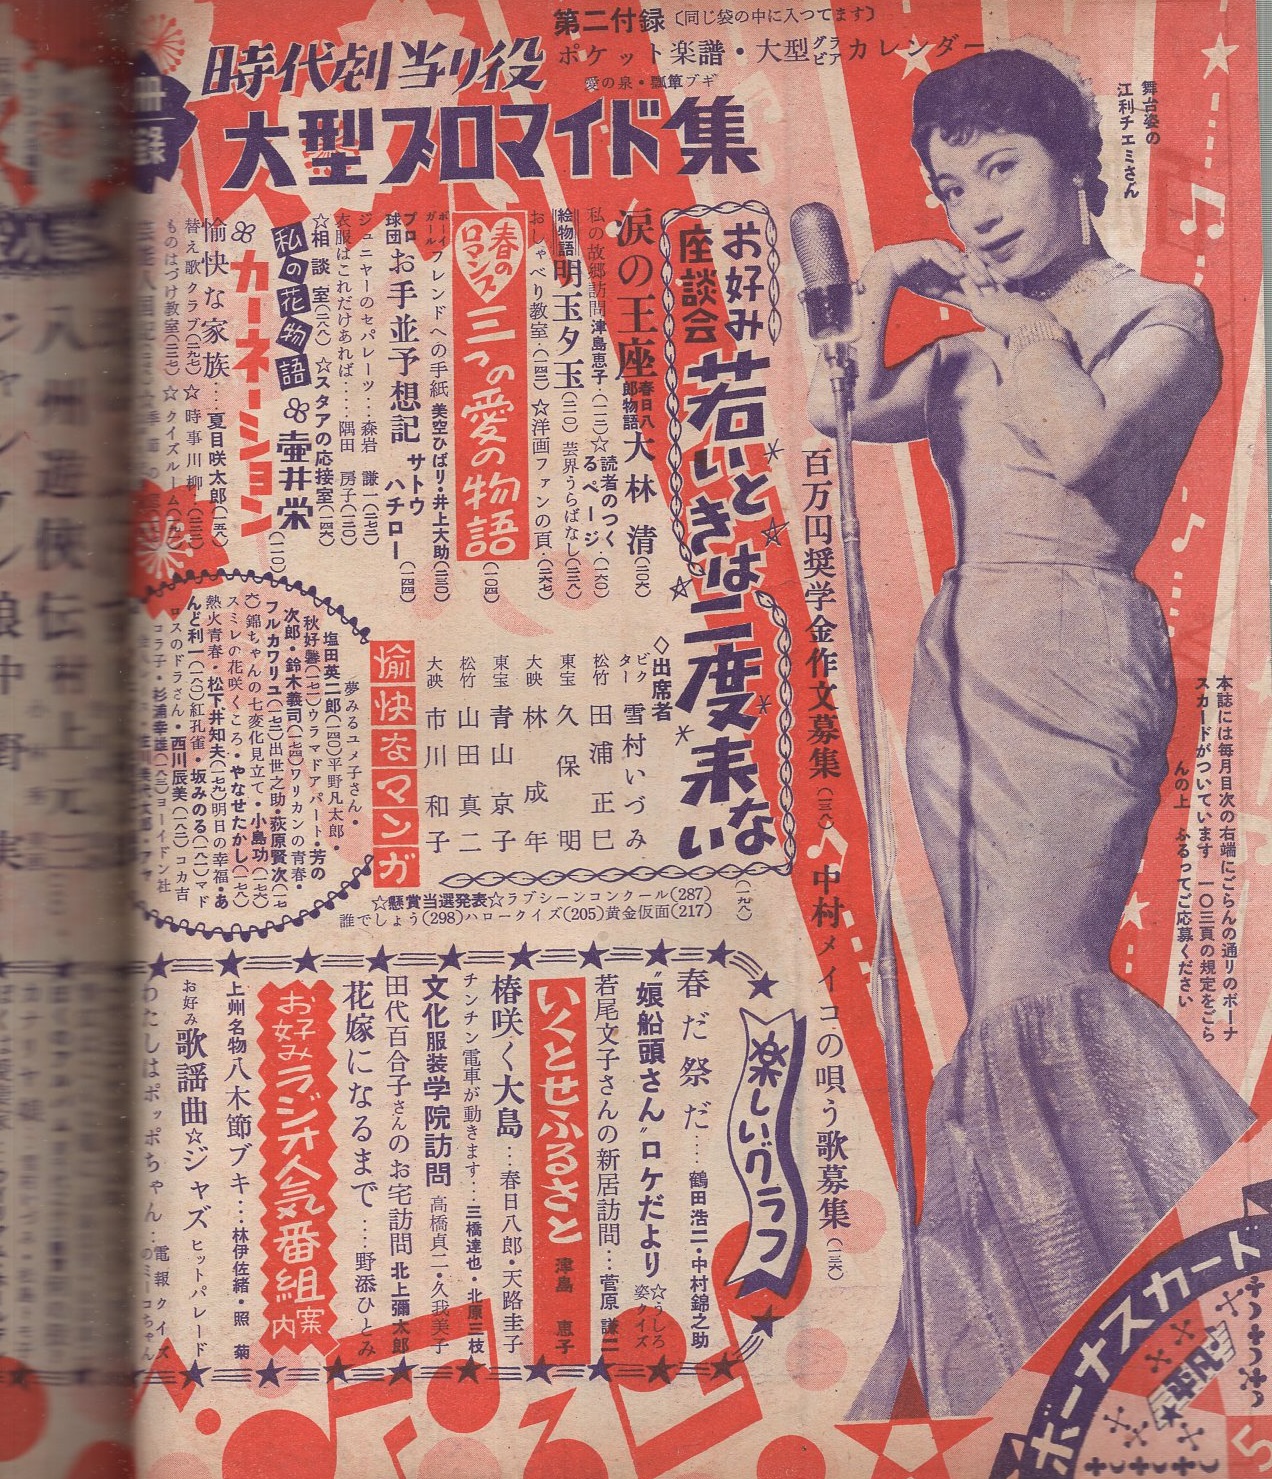 第二付録〔同じ袋の中に入つてます〕
ポケット楽譜・大型グラビアカレンダー
愛の泉・瓢箪ブギ
時代劇当り役
大型ブロマイド集
舞台姿の
江利チエミさん
本誌には毎月目次の右端にごらんの通りのボーナ
スカードがついています 一〇三頁の規定をごら
んの上 ふるってご応募ください
百万円奨学金作文募集(一三八)♪中村メイコの唄う歌募集(一三六)
お好み
座談会
若いときは二度来ない
(一九八)
◇出席者
ビクター 雪村いづみ
松竹 田浦正巳
東宝 久保明
大映 林成年
東宝 青山京子
松竹 山田真二
大映 市川和子
涙の王座 春日八郎物語 大林清(二〇六)
私の故郷訪問 津島恵子・(一二)☆読者のつくるページ・(一六〇)
絵物語 明玉夕玉(三一〇)芸界うらばなし(三三八)
おしゃべり教室・(一四二)☆洋画ファンの頁・(二六七)
春のロマンス 三つの愛の物語(一〇四)
ボーイガールフレンドへの手紙 美空ひばり・井上大助(二三〇)
プロ球団 お手並予想記 サトウハチロー(一二四)
ジュニヤーのセパレーツ・・森岩謙一(二七二)
衣服はこれだけあれば・・・・隅田房子(一三〇)
☆相談室(二六八)☆スタアの応接室(一四六)
私の花物語
カーネーション 壷井栄(一一〇)
愉快な家族・・・夏目咲太郎(一五八)
替え歌クラブ(二九七)☆時事川柳・(二三三)
ものはづけ教室(二三七)☆クイズルーム
愉快なマンガ
夢みるユメ子さん・
塩田英二郎(一四〇)平野凡太郎・
秋好馨(一七一)ウラマドアパート・芳の
次郎・鈴木義司(一七四)ワリカンの青春・
フルカワリユ(一七三)出世之助・荻原賢次(一七
六)錦ちゃんの七変化見立て・小島功(一七六)
スミレの花咲くころ・やなせたかし(一七八)
熱火青春・松下井知夫(一七九)明日の幸福・あ
んど利一(一八〇)紅孔雀・坂みのる(一八一)マド
ロスのドラさん・西川辰美(一八二)コカ吉
コラ子・杉浦幸雄(一八三)ヨーイドン社
☆懸賞当選発表☆ラブシーンコンクール(287)
誰でしょう(298)ハロークイズ(205)黄金仮面(217)
楽しいグラフ
春だ祭だ・・・・鶴田浩二・中村錦之助
〝娘船頭さん〟ロケだより ☆うしろ姿クイズ
若尾文子さんの新居訪問・・・菅原謙二
いくとせふるさと 津島恵子
椿咲く大島・・・春日八郎・天路圭子
チンチン電車が動きます・・・三橋達也・北原三枝
文化服装学院訪問 高橋貞二・久我美子
田代百合子さんのお宅訪問 北上彌太郎
花嫁になるまで・・・・野添ひとみ
お好みラジオ人気番組案内
上州名物八木節ブキ・・・林伊佐緒・照菊
お好み歌謡曲☆ジャズ ヒットパレード
わたしはポッポちゃん・・電報クイズ
ボーナスカード
平凡
5